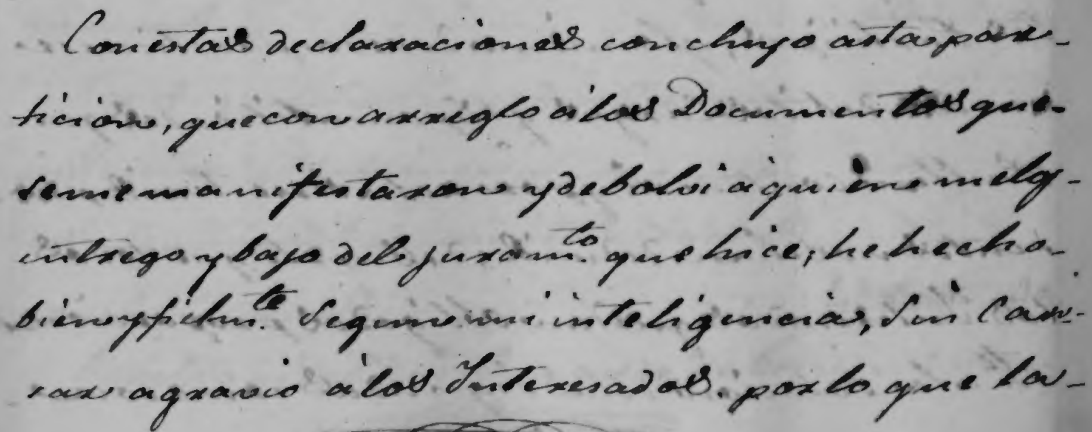 Con estas declaraciones concluyo asta par-
ticion, que con arreglo á los Documentos que
seme manifestaron y debolvi á quien melos
entrego y bajo del juram.to que hice, he hecho
bien y fielm.te Segun mi inteligencia, Sin Cau-
sar agravio á los Interesados. por lo que la